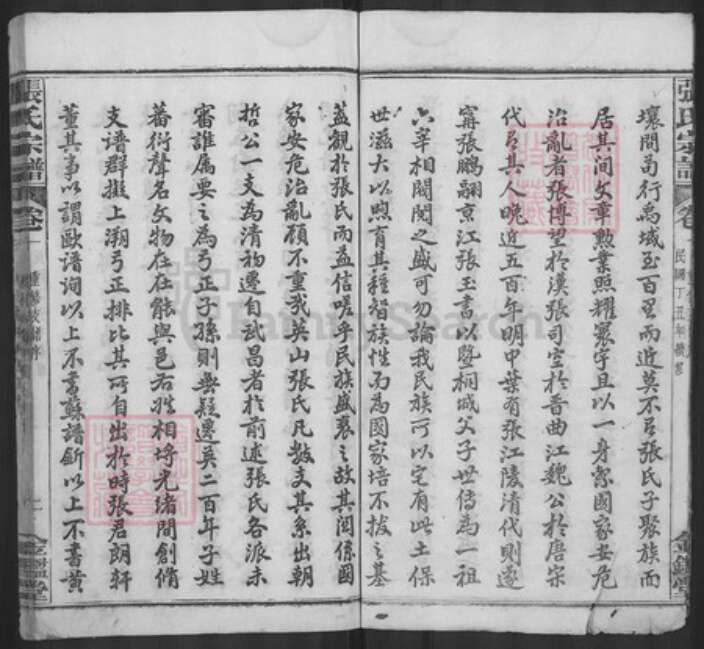 張氏宗譜
卷一
民國丁丑年續修
金鑑堂
壤間萄行禹域至百里而近莫不有張氏子聚族而
居其间文章勲業照耀寰宇且以一身繫國家安危
治亂者張博望於漢張司空於晋曲江魏公於唐宋
代有其人晚近五百年明中葉有張江陵清代則遂
甯張鵬翮京江張玉書以暨桐城父子世傳為一祖
六宰相閥閱之盛可勿論我民族可以宅有此土保
世滋大以煦育其種智族性而為國家培不拔之基
蓋觀於張氏而益信嗟乎民族盛衰之故其関係國
家安危治亂顧不重哉英山張氏凡數支其系出朝
哲公一支為清初遷自武昌者於前述張氏各派未
審誰属要之為弓正子孫則無疑遷英二百年子姓
蕃衍聲名文物在在能與邑右姓相埒光绪間創脩
支谱群撥上溯弓正排比其可自出於時張君朗軒
董其事以謂歐谱洵以上不書蘇譜釿以上不書黄
張氏宗譜
卷一
重修支譜序
金鑑堂
FamilySearch